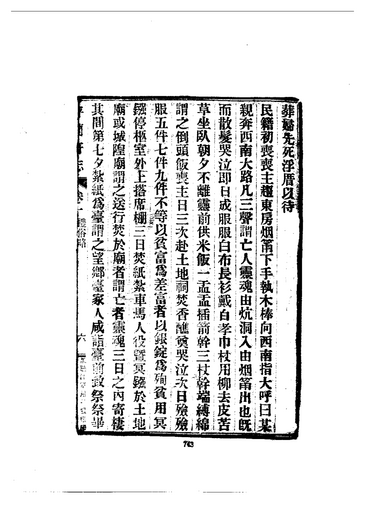 葬嫠先死浮厝以待
民籍初喪喪主趨東房烟筩下手執木棒向西南指大呼曰某
親奔西南大路凡三聲謂亡人靈魂由炕洞入由烟筩出也旣
而散髮哭泣即日成服服白布長衫戴白孝巾杖用柳去皮苫
草坐臥朝夕不離靈前供米飯一盂盂插箭幹三杖幹端縛綿
謂之倒頭飯喪主日三次赴土地祠焚香醮奠哭泣次日殮殮
服五件七件九件不等以貧富為差富者以銀錠為殉貧用冥
鏹停柩室外上搭席棚三日焚紙紮車馬人役曁冥鏹於土地
廟或城隍廟謂之送行焚於廟者謂亡者靈魂三日之內寄棲
其間第七夕紮紙為臺謂之望鄉臺家人咸詣臺前致祭祭畢
志
禮俗略
六
743